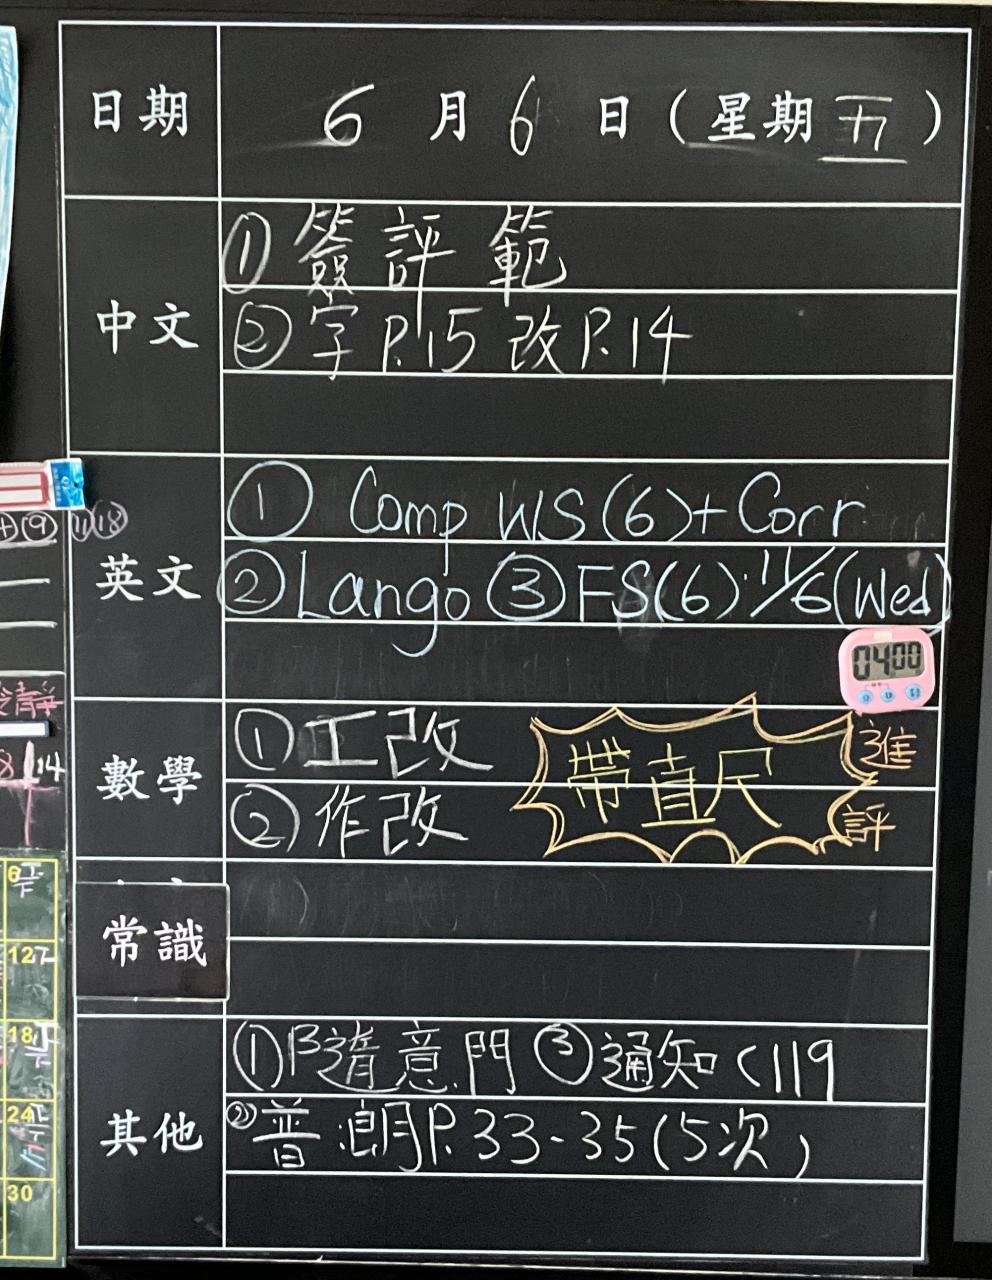 日期 6 月 6 日 (星期 五)
中文
① 簽 評 範
② 字 P.15 改 P.14
英文
① Comp WS (6) + Corr
② Lango ③ FS(6) 11/6 (Wed)
0400
數學
① 工改
② 作改
帶直尺
進
評
常識
其他
① 隨意門 ③ 通知 C119
② 普 朗 P.33-35 (5次)
⑨
⑪⑱
靜
8 14
6
12
18
24
30